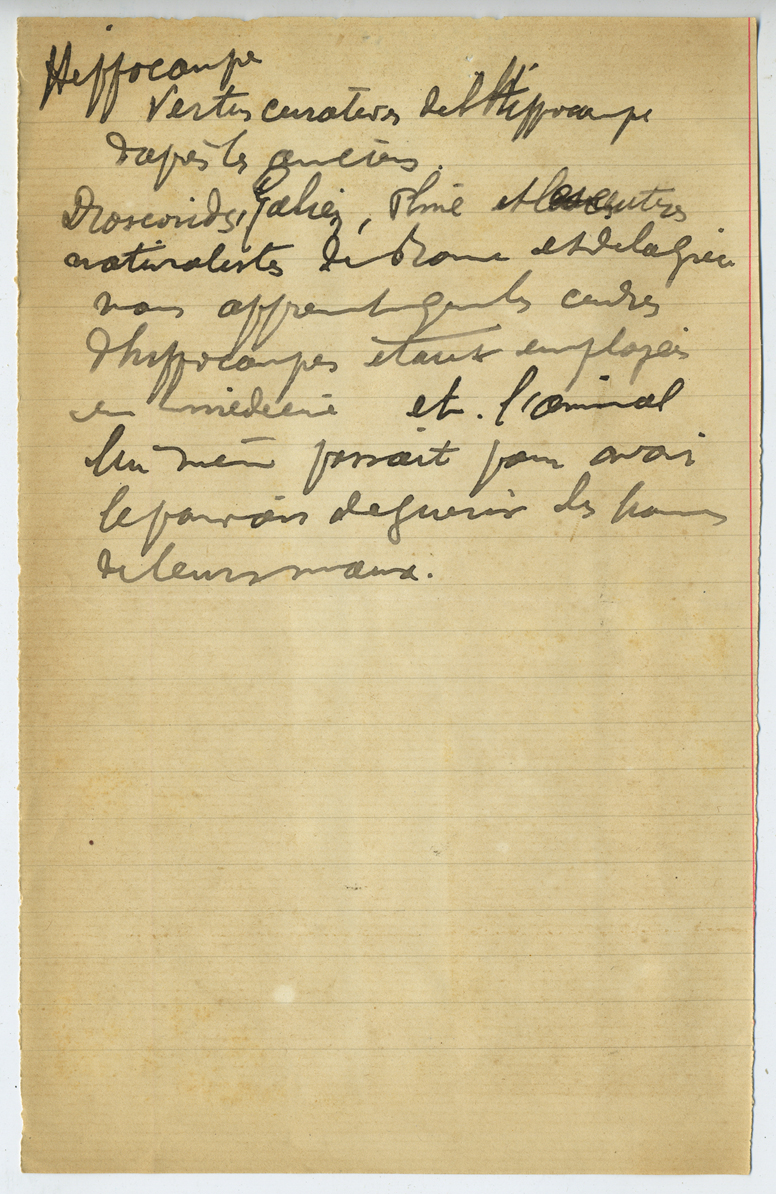 Hippocampe
Vertus curatives de l'Hippocampe
d'après les anciens.
Dioscorides, Galien, Pline et les autres
naturalistes de Rome et de la Grèce
nous apprennent que les cendres
d'hippocampes étaient employées
en médecine et l'animal
lui même passait pour avoir
le pouvoir de guérir les hommes
de leurs maux.